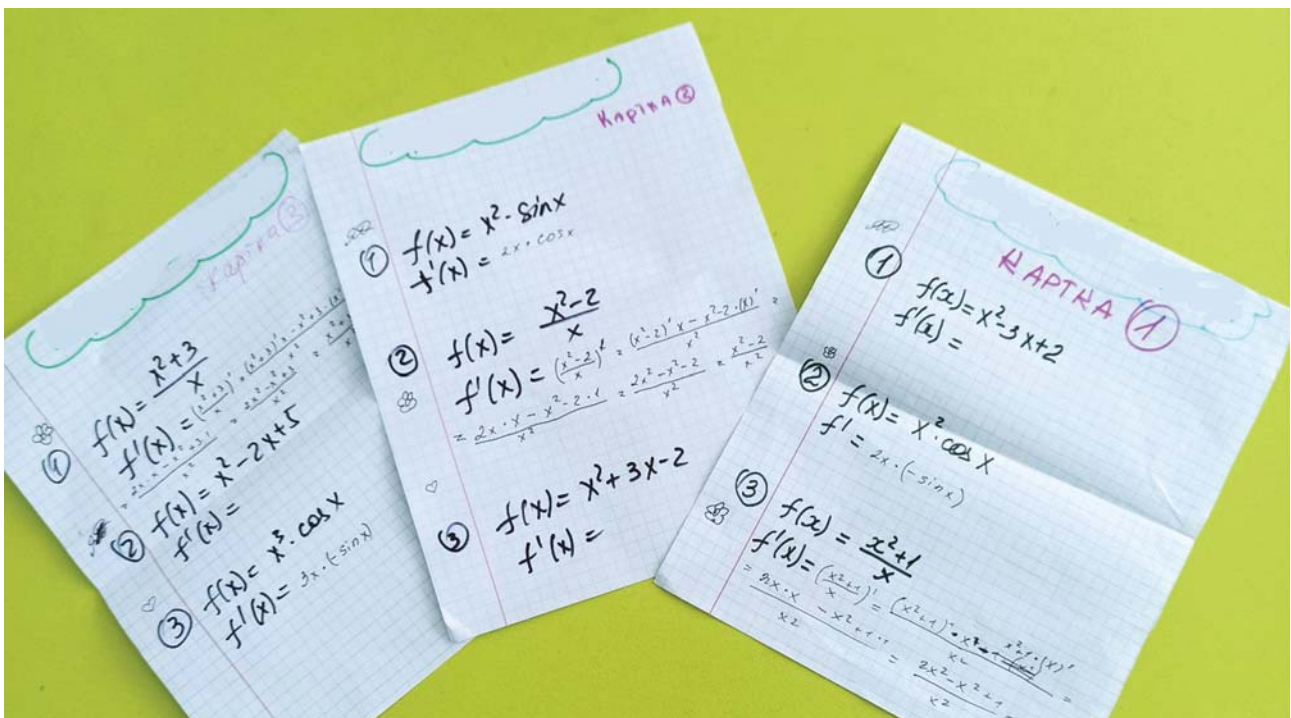 Картка 3
① f(x) = \frac{x²+3}{x}
f'(x) = (\frac{x²+3}{x})' = \frac{(x²+3)'·x-x²+3·(x)'}{x²} =
= \frac{2x·x-x²+3·1}{x²} = \frac{2x²-x²+3}{x²} =
② f(x) = x²-2x+5
f'(x) =
③ f(x) = x³·cos x
f'(x) = 3x·(-sin x)
Картка ②
① f(x) = x²-sin x
f'(x) = 2x·cos x
② f(x) = \frac{x²-2}{x}
f'(x) = (\frac{x²-2}{x})' = \frac{(x²-2)'x-x²-2·(x)'}{x²} =
= \frac{2x·x-x²-2·1}{x²} = \frac{2x²-x²-2}{x²} = \frac{x²-2}{x²}
③ f(x) = x²+3x-2
f'(x) =
КАРТКА ①
① f(x) = x²-3x+2
f'(x) =
② f(x) = x²·cos x
f' = 2x·(-sin x)
③ f(x) = \frac{x²+1}{x}
f'(x) = (\frac{x²+1}{x})' = \frac{(x²+1)'·x x²+1·(x)'}{x²} =
= \frac{2x·x-x²+1·1}{x²} = \frac{2x²-x²+1}{x²} =